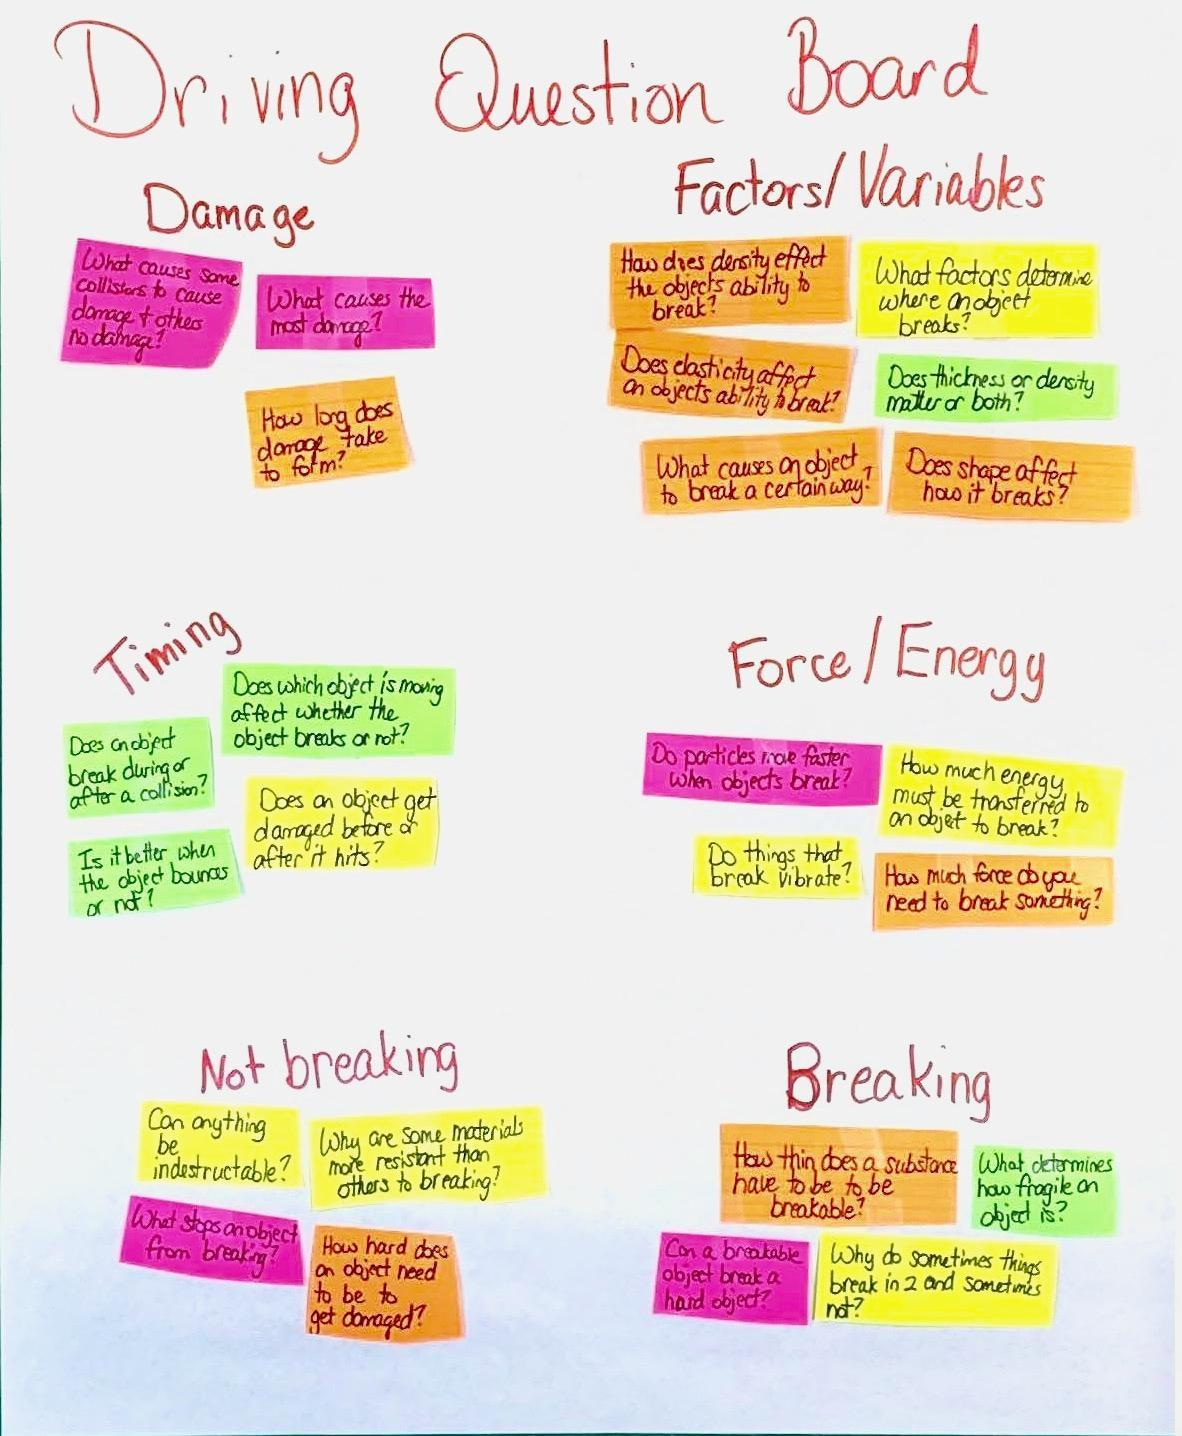 Driving Question Board
Damage
What causes some
collisions to cause
damage & others
no damage?
What causes the
most damage?
How long does
damage take
to form?
Factors/Variables
How does density effect
the objects ability to
break?
What factors determine
where an object
breaks?
Does elasticity affect
an objects ability to break?
Does thickness or density
matter or both?
What causes an object
to break a certain way?
Does shape affect
how it breaks?
Timing
Does which object is moving
affect whether the
object breaks or not?
Does an object
break during or
after a collision?
Does an object get
damaged before or
after it hits?
Is it better when
the object bounces
or not?
Force/Energy
Do particles move faster
when objects break?
How much energy
must be transferred to
an objet to break?
Do things that
break vibrate?
How much force do you
need to break something?
Not breaking
Can anything
be
indestructable?
Why are some materials
more resistant than
others to breaking?
What stops an object
from breaking?
How hard does
an object need
to be to
get damaged?
Breaking
How thin does a substance
have to be to be
breakable?
What determines
how fragile an
object is?
Can a breakable
object break a
hard object?
Why do sometimes things
break in 2 and sometimes
not?